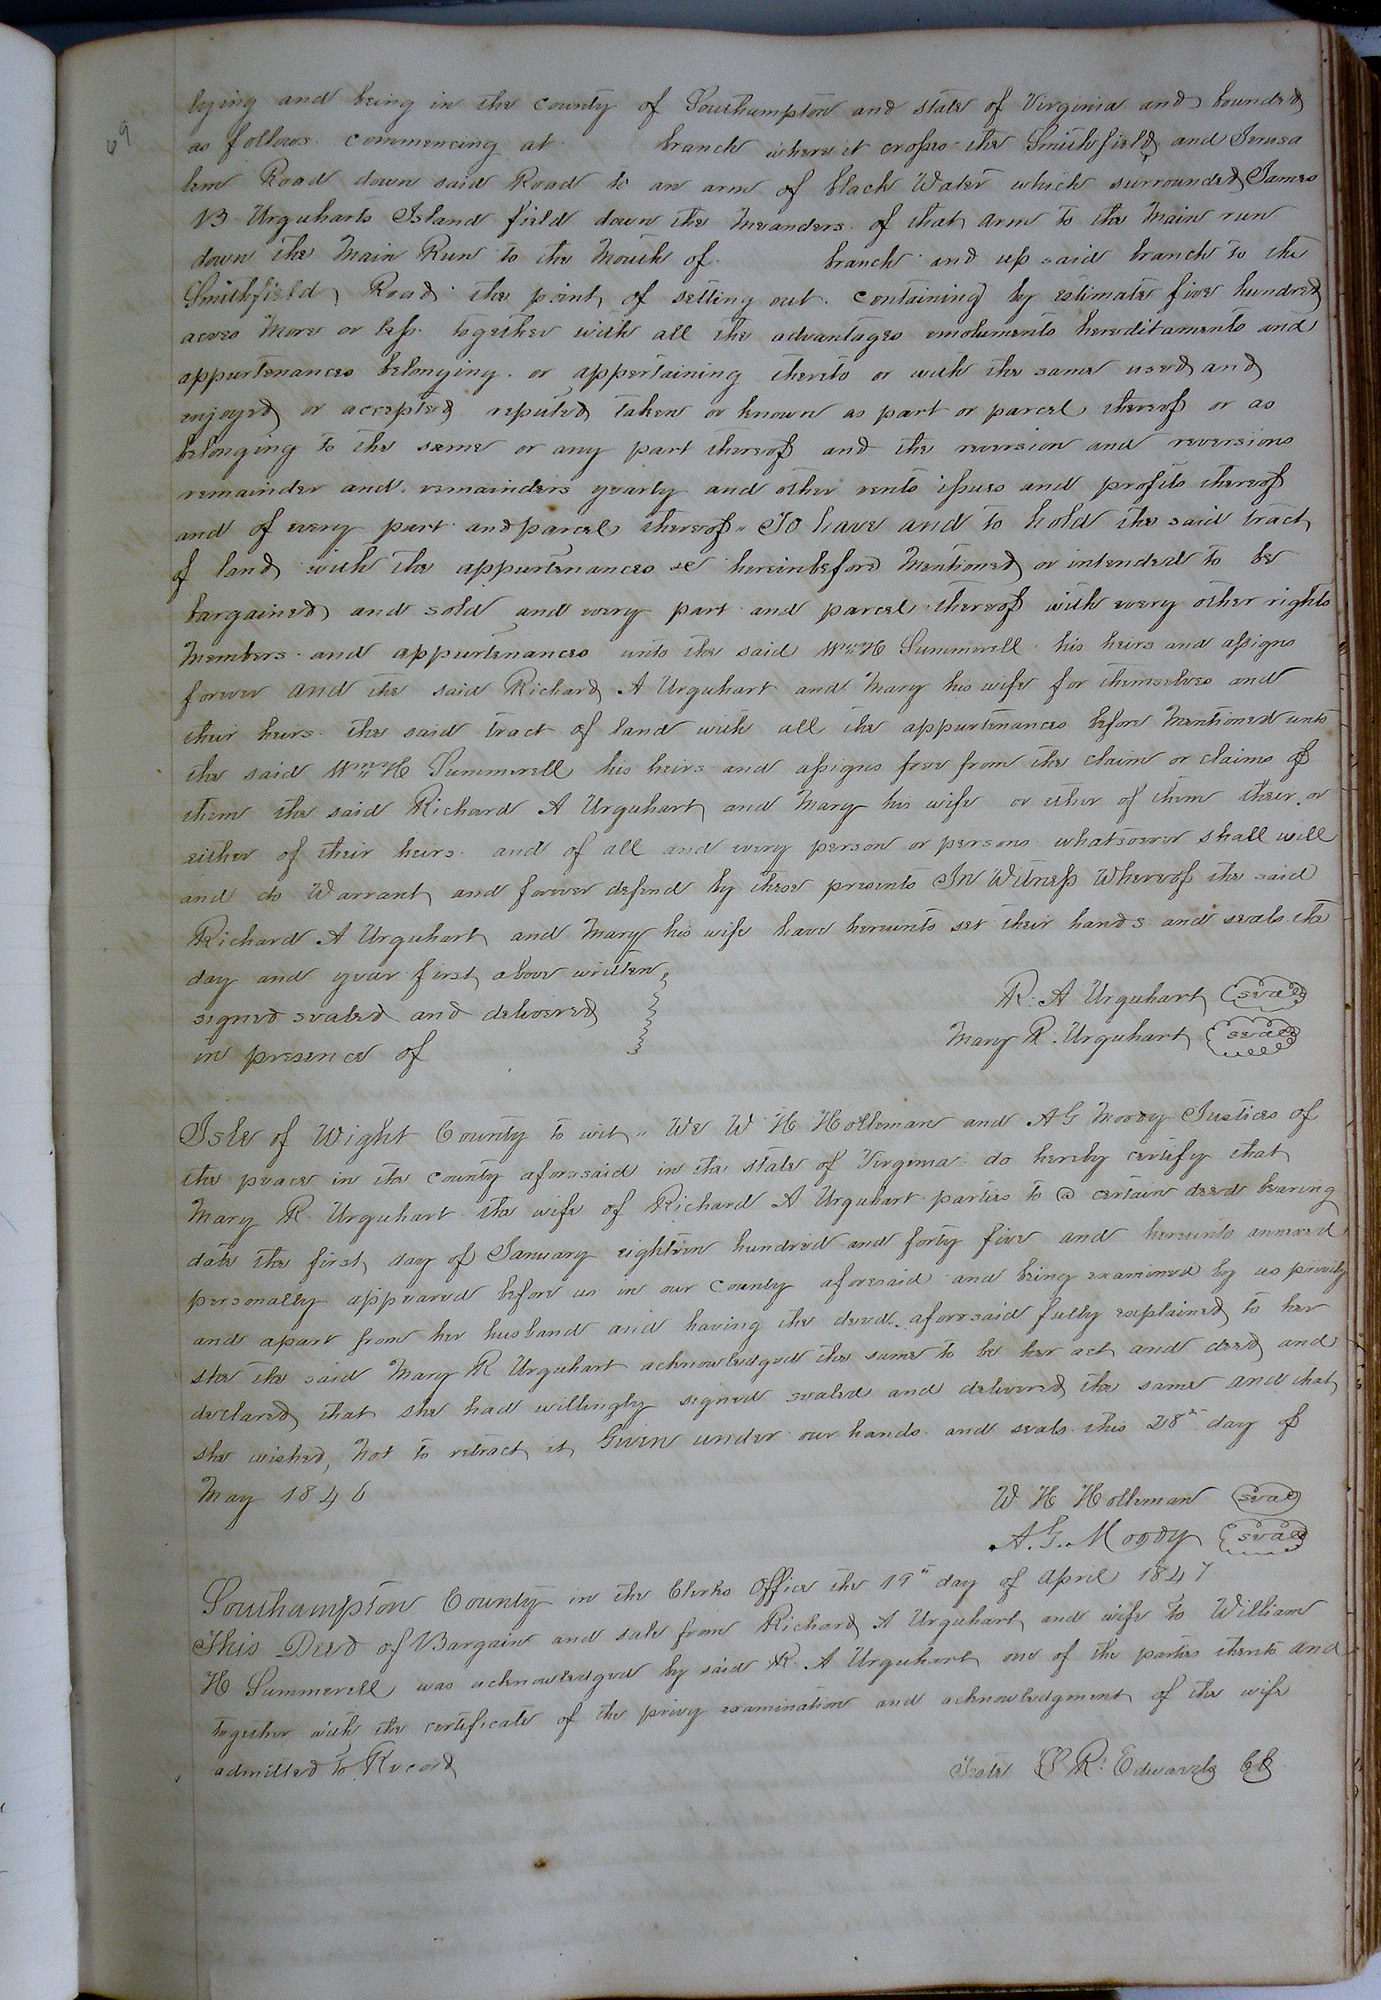 69
lying and being in the county of Southampton and state of Virginia and bounded
as follows. commencing at branch where it crosses the Smithfield and Jerusa
lem Road down said Road to an arm of black Water which surrounded James
B Urquharts Island field down the meanders of that arm to the Main run
down the Main Run to the Mouth of branch and up said branch to the
Smithfield Road the point of setting out. Containing by estimate five hundred
acres More or less together with all the advantages emoluments hereditaments and
appurtenances belonging or appertaining thereto or with the same used and
enjoyed or accepted reputed taken or known as part or parcel thereof or as
belonging to the same or any part thereof and the reversion and reversions
remainder and remainders yearly and other rents issues and profits thereof
and of every part and parcel thereof " To have and to hold the said tract
of land with the appurtenances &c hereinbefore Mentioned or intended to be
bargained and sold and every part and parcel thereof with every other rights
Members and appurtenances unto the said Wm H Summerell his heirs and assigns
forever and the said Richard A Urquhart and Mary his wife for themselves and
their heirs the said tract of land with all the appurtenances before Mentioned unto
the said Wm H Summerell his heirs and assigns free from the claim or claims of
them the said Richard A Urquhart and Mary his wife or either of them their or
either of their heirs and of all and every person or persons whatsoever shall will
and do Warrant and forever defend by these presents In Witness Whereof the said
Richard A Urquhart and Mary his wife have hereunto set their hands and seals the
day and year first above written
signed sealed and delivered
in presence of
R. A Urquhart seal
Mary R. Urquhart seal
Isle of Wight County to wit " We W H Holleman and A G Moody Justices of
the peace in the county aforesaid in the state of Virginia do hereby certify that
Mary R Urquhart the wife of Richard A Urquhart parties to a certain deed bearing
date the first day of January eighteen hundred and forty five and hereunto annexed
personally appeared before us in our County aforesaid and being examined by us privily
and apart from her husband and having the deed aforesaid fully explained to her
she the said Mary R Urquhart acknowledged the same to be her act and deed and
declared that she had willingly signed sealed and delivered the same and that
she wished not to retract it Given under our hands and seals this 28th day of
May 1846
W H Holleman seal
A. G. Moody seal
Southampton County in the Clerks Office the 19th day of April 1847
This Deed of Bargain and sale from Richard A Urquhart and wife to William
H Summerell was acknowledged by said R. A Urquhart one of the parties thereto and
together with the certificate of the privy examination and acknowledgment of the wife
admitted to Record
Teste L R. Edwards CC